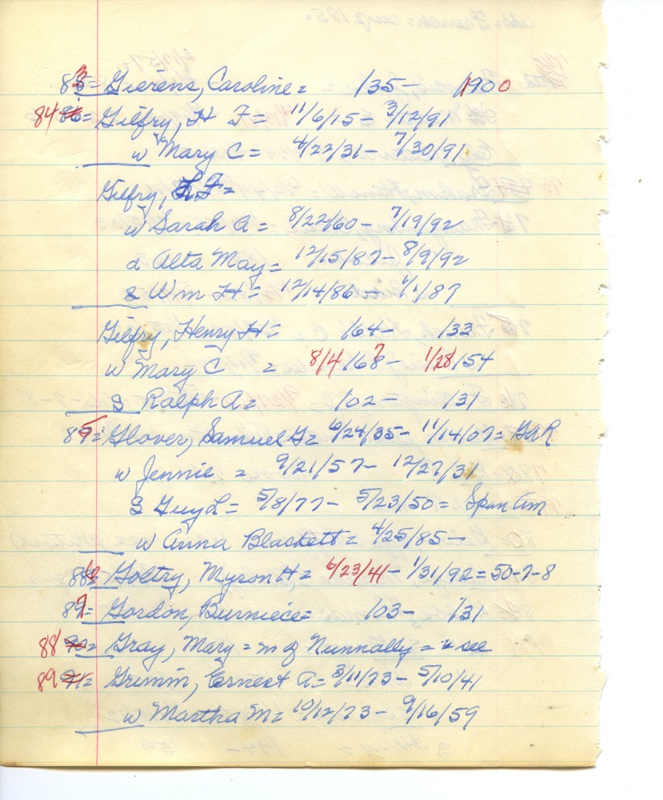 83= Gierens, Caroline = /35- 1900
84= Gilfry, H F= 11/6/15- 3/12/91
w Mary C= 4/22/31- 7/30/91
Gilfry, =
w Sarah A= 8/22/60- 7/19/92
d Alta May= 12/15/87- 8/9/92
s Wm H= 12/14/86- 1/1/87
Gilfry, Henry H= /64- /33
w Mary C = 8/4/67- 1/28/54
S Ralph A= /02- /31
85= Glover, Samuel G= 6/24/35- 11/14/07= GAR
w Jennie = 9/21/57- 12/27/31
S Guy L= 5/8/77- 5/23/50= Span Am
w Anna Blackett= 4/25/85-
86= Goltry, Myron H= 6/23/41- 1/31/92=50-7-8
87= Gordon, Burniece= /03- /31
88= Gray, Mary = m of Nunnally = see
89= Grimm, Ernest A= 3/11/73- 5/10/41
w Martha M= 10/12/73- 9/16/59